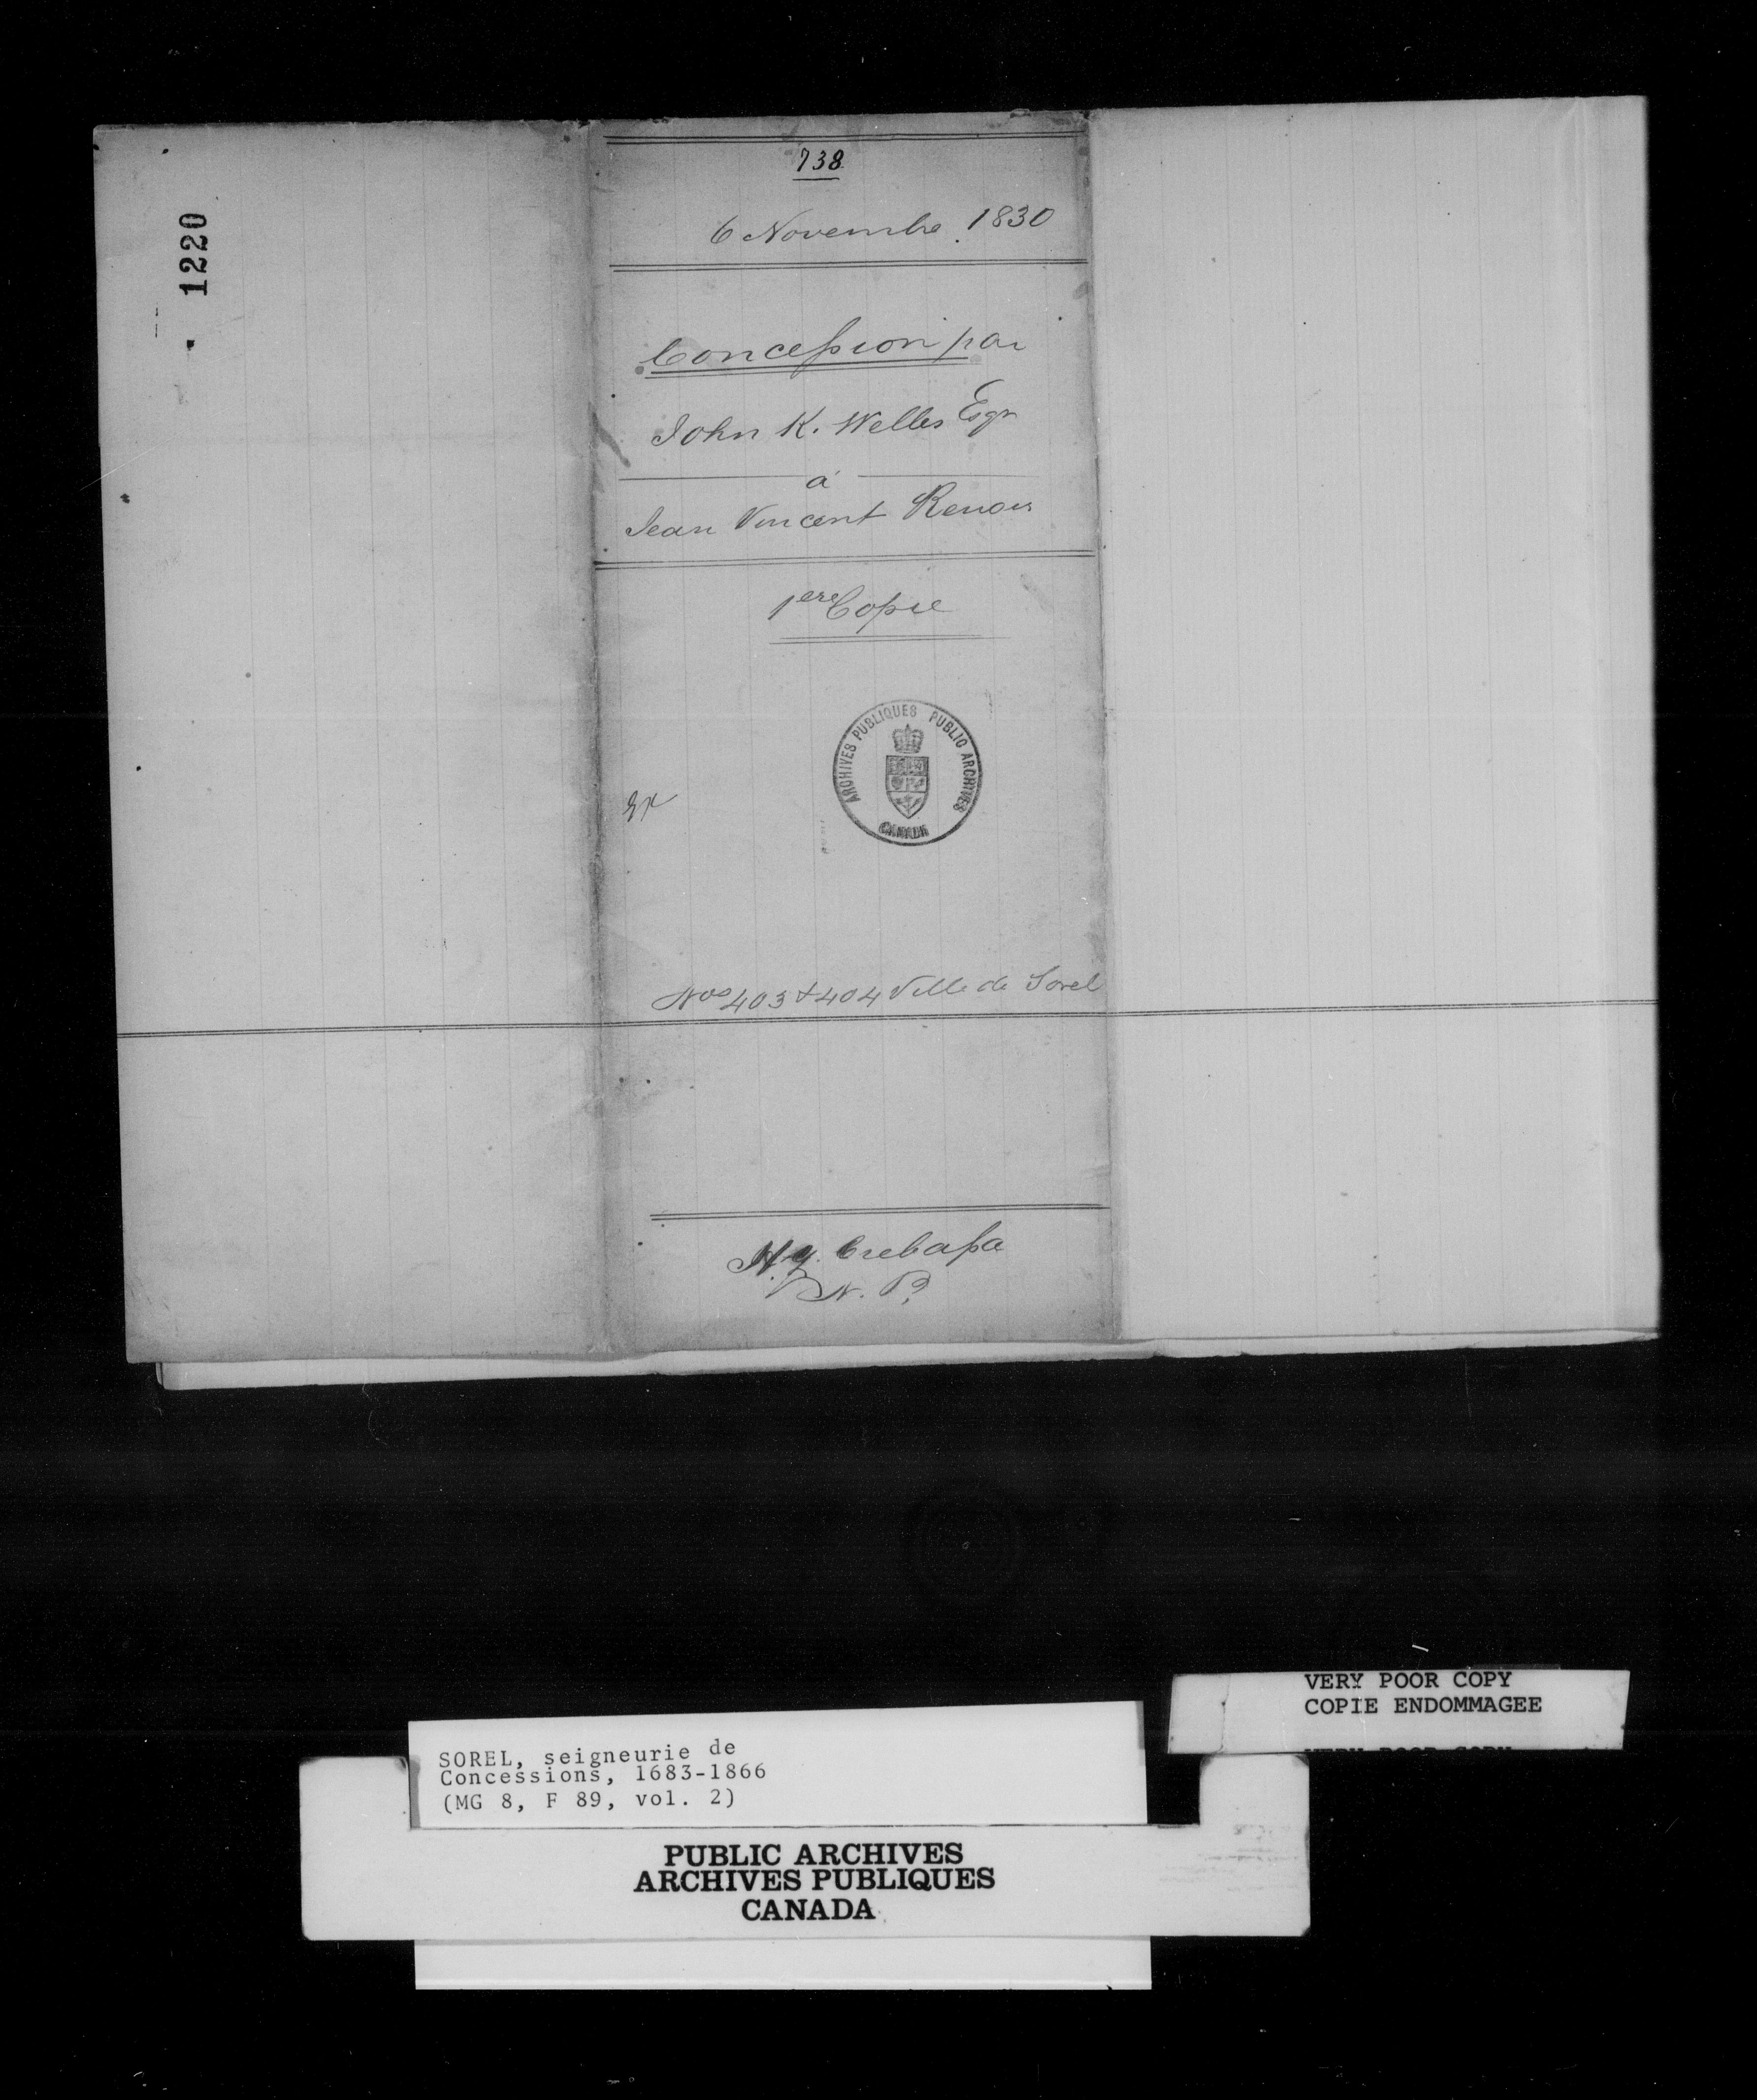 1220
738
6 Novembre 1830
Concession par
John K. Welles Esqr
à
Jean Vincent Renois
1ere Copie
ARCHIVES PUBLIQUES PUBLIC ARCHIVES
CANADA
Nos 403 & 404 Ville de Sorel
H. Y. Crebassa
N. P.
VERY POOR COPY
COPIE ENDOMMAGEE
VERY POOR COPY
SOREL, seigneurie de
Concessions, 1683-1866
(MG 8, F 89, vol. 2)
PUBLIC ARCHIVES
ARCHIVES PUBLIQUES
CANADA